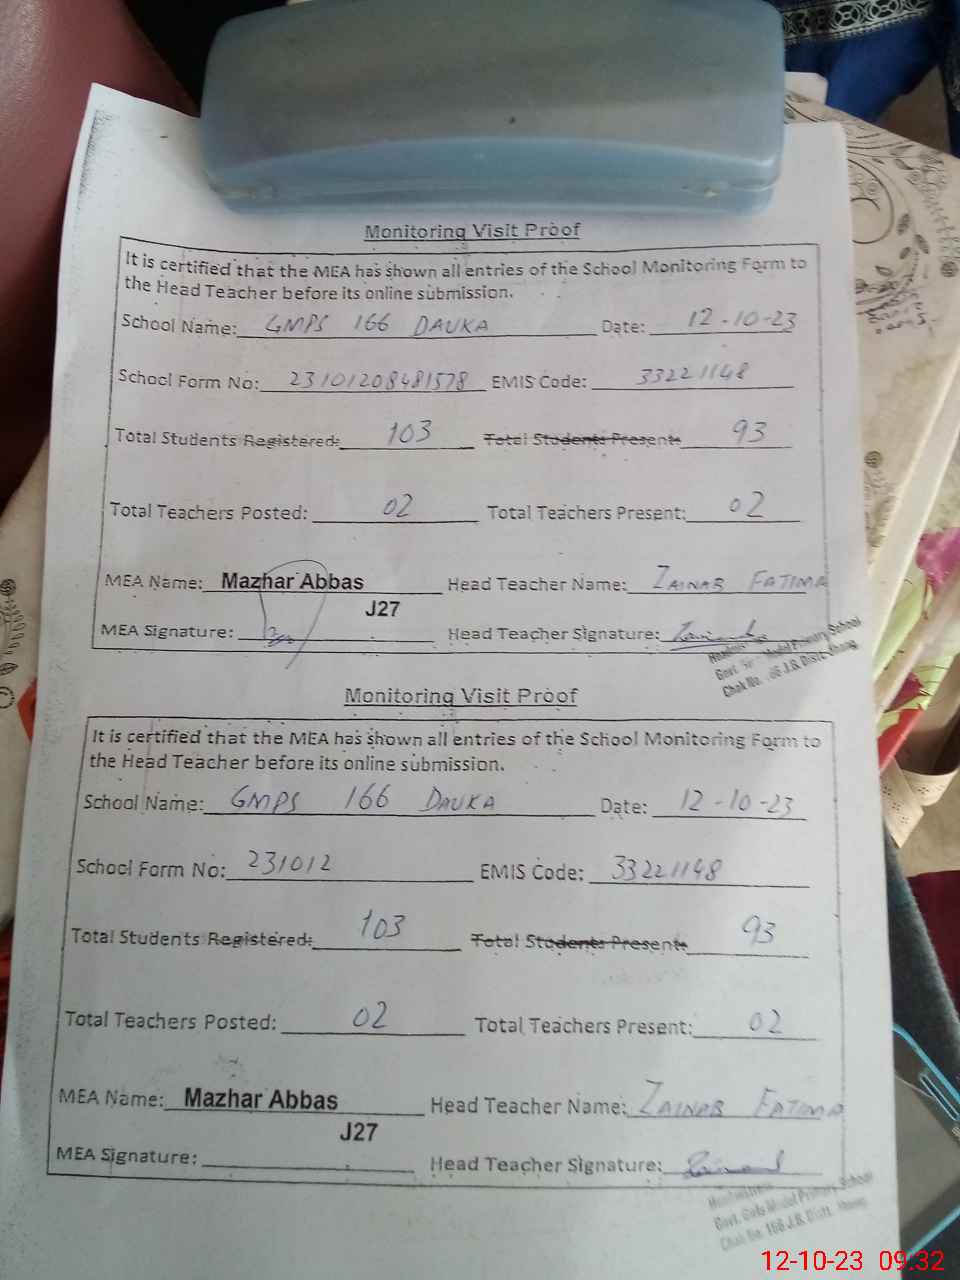 Monitoring Visit Proof
It is certified that the MEA has shown all entries of the School Monitoring Form to
the Head Teacher before its online submission.
School Name: GMPS 166 DAUKA Date: 12-10-23
School Form No: 23101208481578 EMIS Code: 33221148
Total Students Registered: 103 Total Students Present: 93
Total Teachers Posted: 02 Total Teachers Present: 02
MEA Name: Mazhar Abbas Head Teacher Name: ZAINAB FATIMA
J27
MEA Signature: Head Teacher Signature:
Govt. Model Primary School
Chak No. 166 J.B. Distt. Jhang
Monitoring Visit Proof
It is certified that the MEA has shown all entries of the School Monitoring Form to
the Head Teacher before its online submission.
School Name: GMPS 166 DAUKA Date: 12-10-23
School Form No: 231012 EMIS Code: 33221148
Total Students Registered: 103 Total Students Present: 93
Total Teachers Posted: 02 Total Teachers Present: 02
MEA Name: Mazhar Abbas Head Teacher Name: ZAINAB FATIMA
J27
MEA Signature: Head Teacher Signature:
Headmistress
Govt. Girls Model Primary School
Chak No. 166 J.B. Distt. Jhang
12-10-23 09:32